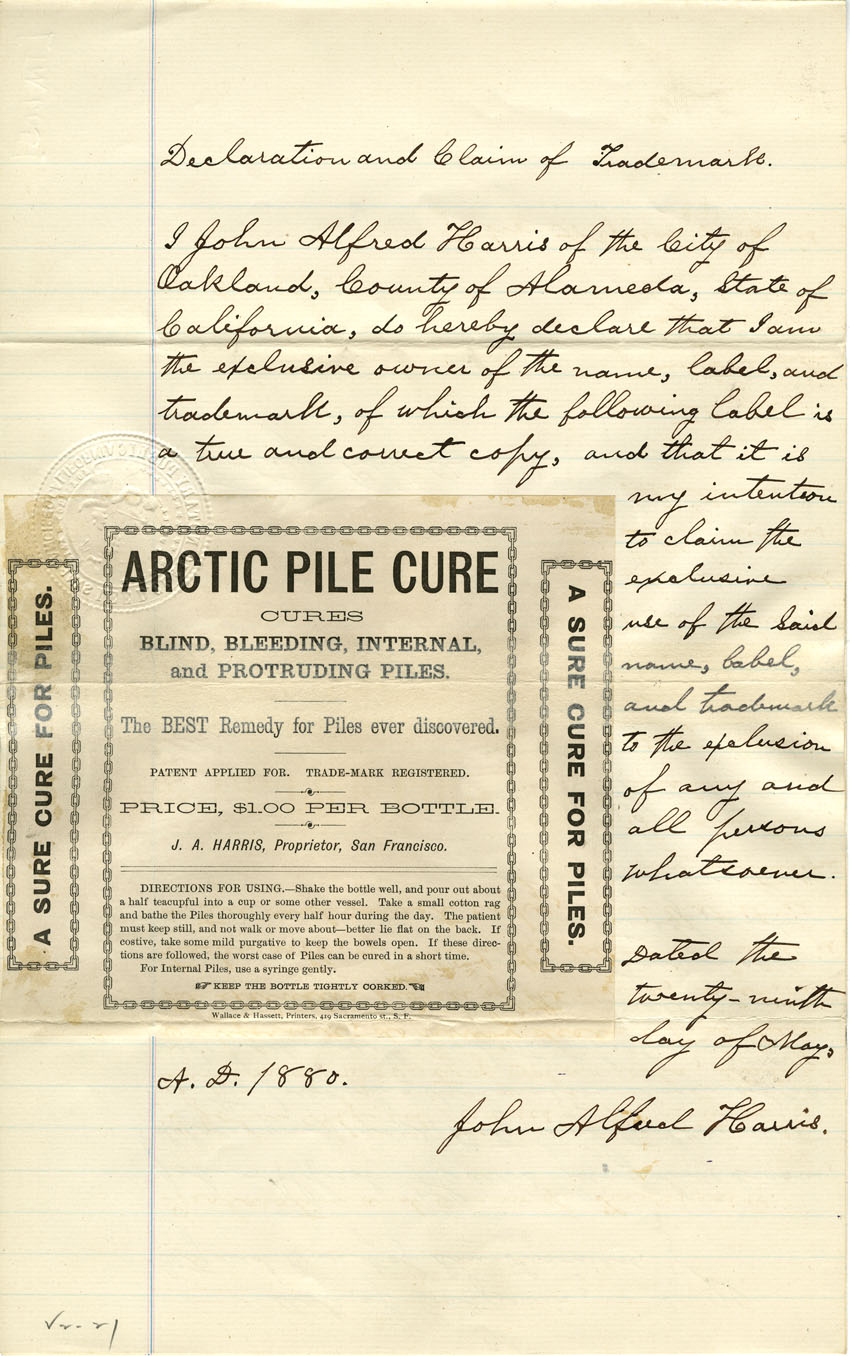 Declaration and Claim of Trademark.
I John Alfred Harris of the City of
Oakland, County of Alameda, State of
California, do hereby declare that I am
the exclusive owner of the name, label, and
trademark, of which the following label is
a true and correct copy, and that it is
my intention
to claim the
exclusive
use of the said
name, label,
and trademark
to the exclusion
of any and
all persons
whatsoever.
Dated the
twenty-ninth
day of May,
A. D. 1880.
John Alfred Harris.
A SURE CURE FOR PILES.
ARCTIC PILE CURE
CURES
BLIND, BLEEDING, INTERNAL,
and PROTRUDING PILES.
The BEST Remedy for Piles ever discovered.
PATENT APPLIED FOR. TRADE-MARK REGISTERED.
PRICE, $1.00 PER BOTTLE.
J. A. HARRIS, Proprietor, San Francisco.
DIRECTIONS FOR USING.—Shake the bottle well, and pour out about
a half teacupful into a cup or some other vessel. Take a small cotton rag
and bathe the Piles thoroughly every half hour during the day. The patient
must keep still, and not walk or move about—better lie flat on the back. If
costive, take some mild purgative to keep the bowels open. If these direc-
tions are followed, the worst case of Piles can be cured in a short time.
For Internal Piles, use a syringe gently.
KEEP THE BOTTLE TIGHTLY CORKED.
Wallace & Hassett, Printers, 419 Sacramento st., S. F.
A SURE CURE FOR PILES.